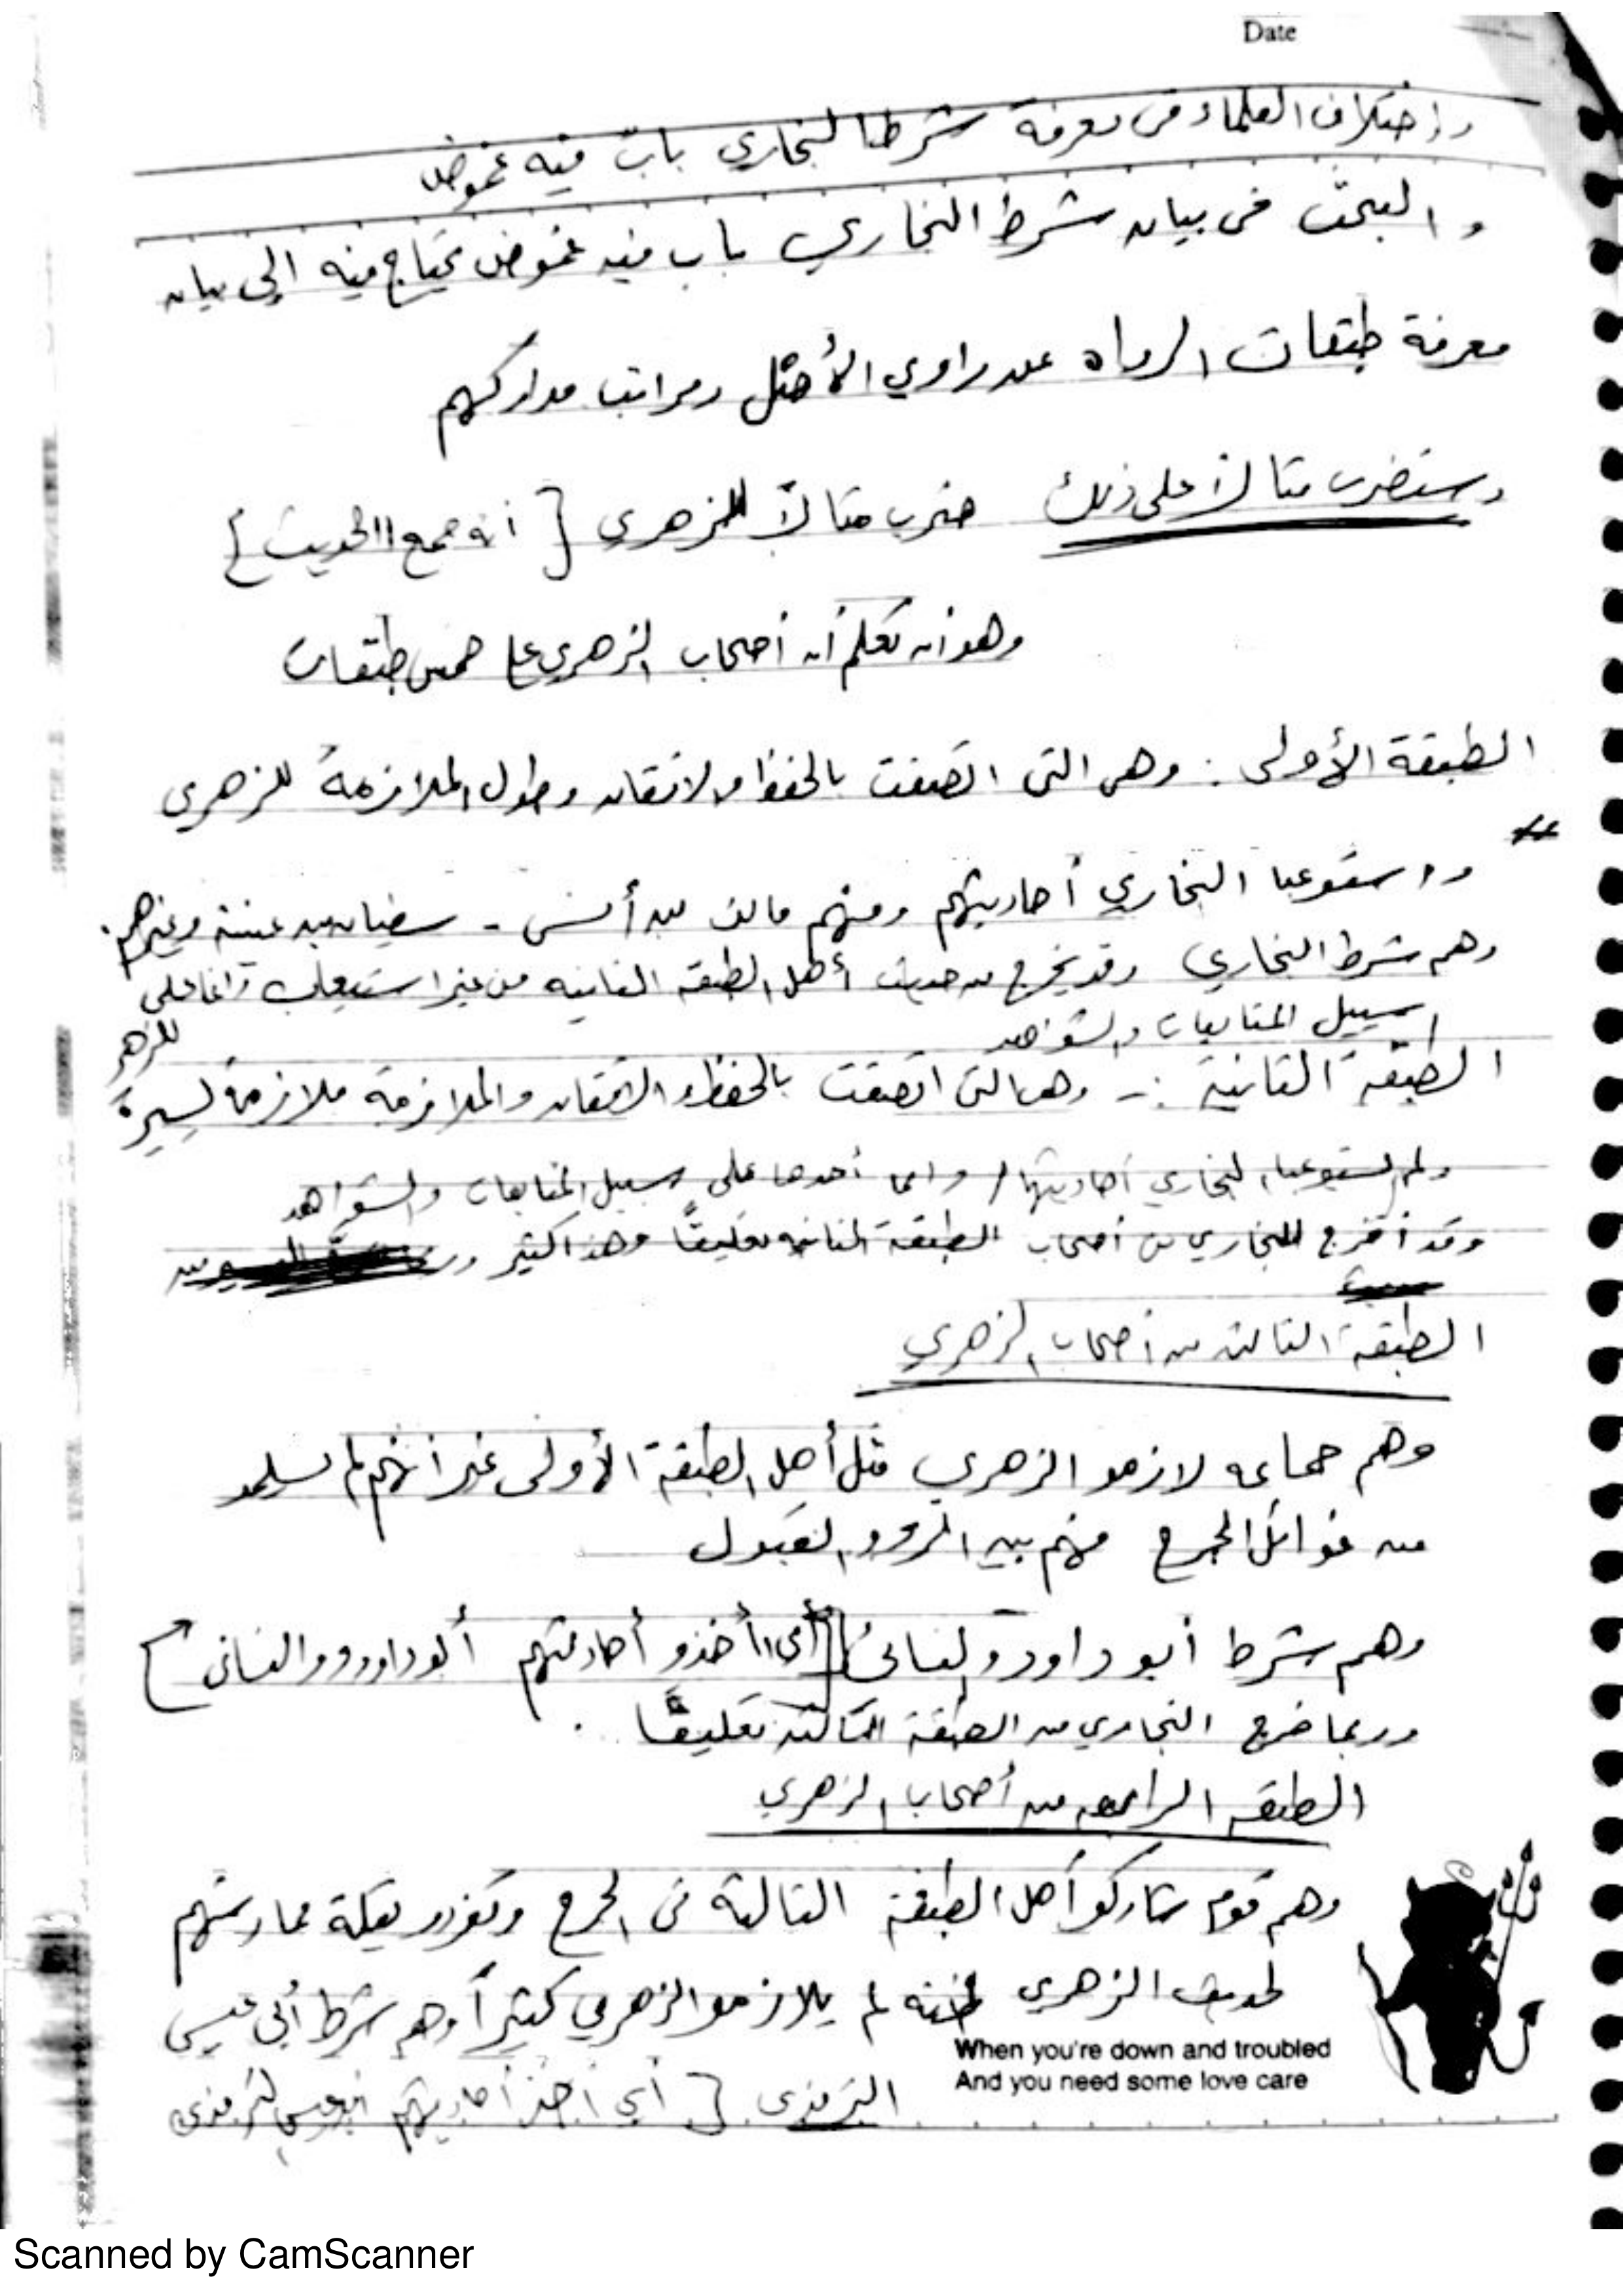 Date
واختلاف العلماء في معرفة شرط البخاري باب فيه غموض
والبحث في بيان شرط البخاري باب فيه غموض يحتاج فيه إلى بيان
معرفة طبقات الرواه عن راوي الأصل ومراتب مداركهم
وسنضرب مثالاً على ذلك ضرب مثالاً للزهري [أنه جمع الحديث]
وهو أن تعلم أن أصحاب الزهري على خمس طبقات
الطبقة الأولى : وهي التي اتصفت بالحفظ والاتقان وطول الملازمة للزهري
واستوعب البخاري أحاديثهم ومنهم مالك بن أنس - سفيان بن عيينة وغيرهم.
وهم شرط البخاري وقد يخرج من حديث أهل الطبقة الثانيه من غير استيعاب وإنما على
سبيل المتابعات والشواهد
الطبقة الثانية :- وهي التي اتصفت بالحفظ والاتقان والملازمة ملازمة يسيرة للزهر
ولم يستوعب البخاري أحاديثها وإنما أخذها على سبيل المتابعات والشواهد
وقد أخرج البخاري من أصحاب الطبقة الثانيه تعليقاً وهذا كثير
الطبقة الثالثه من أصحاب الزهري
وهم جماعه لازمو الزهري مثل أهل الطبقة الأولى غير أنهم لم يسلمو
من غوائل الجرح فهم بين الرد والقبول
وهم شرط أبو داود والنسائي [أي أخذو أحاديثهم أبو داوود والنسائي]
وربما خرج البخاري من الطبقة الثالثه تعليقاً .
الطبقه الرابعه من أصحاب الزهري
وهم قوم شاركو أهل الطبقة الثالثة في الجرح وتفردو بقلة ممارستهم
لحديث الزهري لم يلازمو الزهري كثيراً وهم شرط أبي عيسى
When you're down and troubled
And you need some love care
الترمذي [أي أخذ أحاديثهم أبو عيسى الترمذي
Scanned by CamScanner